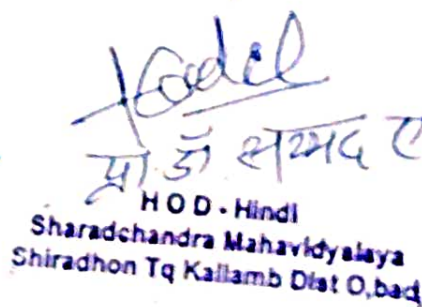 प्रा. डॉ सय्यद ए
H O D - Hindi
Sharadchandra Mahavidyalaya
Shiradhon Tq Kallamb Dist O,bad